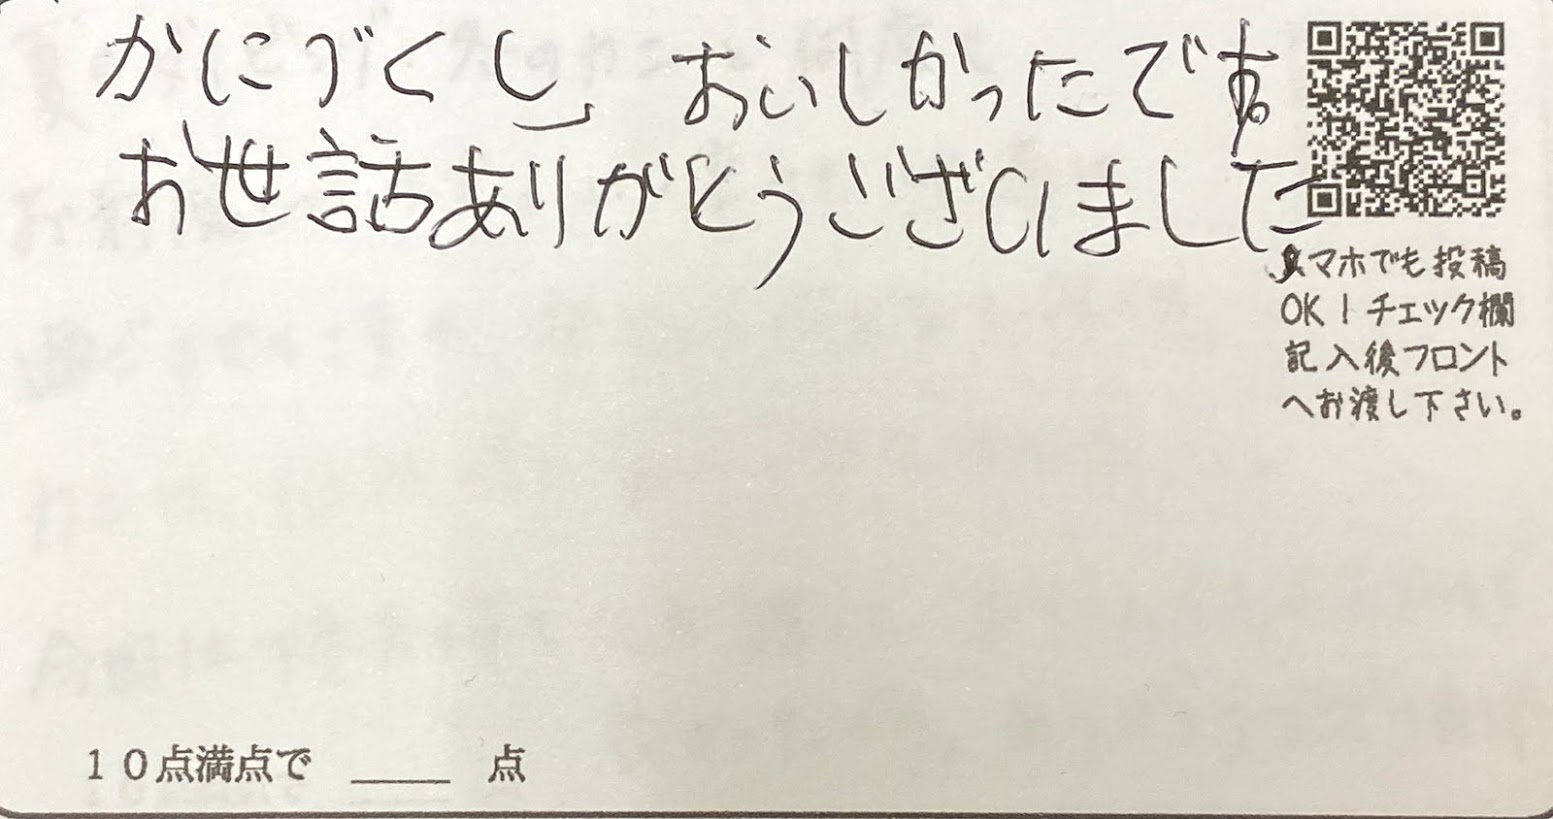 かにづくし、おいしかったです。
お世話ありがとうございました
スマホでも投稿
OK！チェック欄
記入後フロント
へお渡し下さい。
10点満点で ____ 点